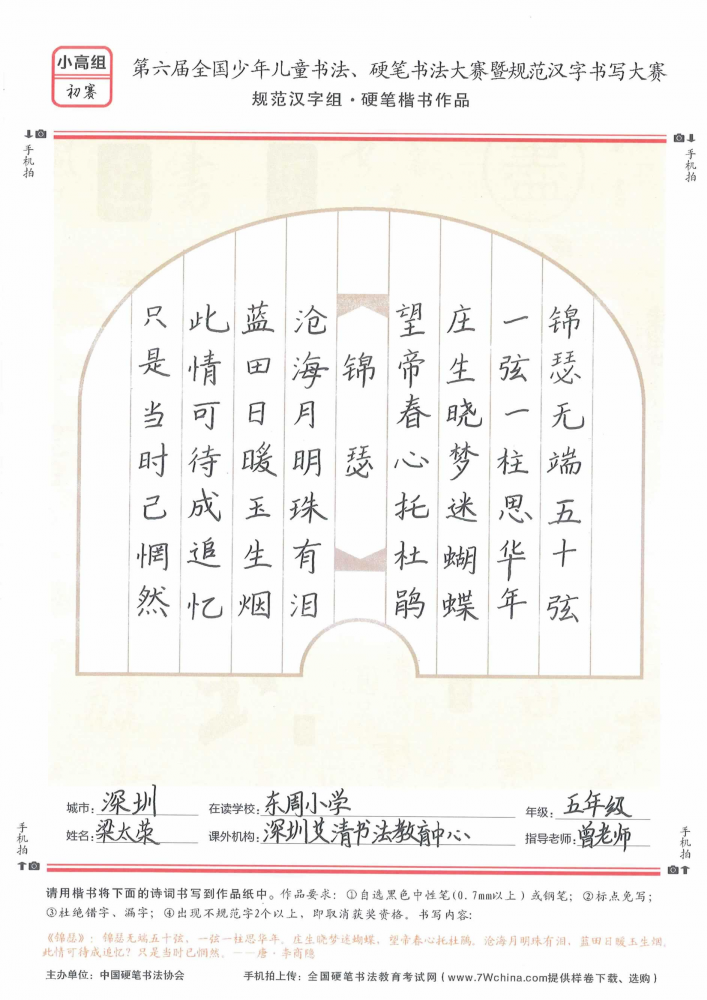 小高组
初赛
第六届全国少年儿童书法、硬笔书法大赛暨规范汉字书写大赛
规范汉字组·硬笔楷书作品
手机拍
手机拍
锦瑟无端五十弦
一弦一柱思华年
庄生晓梦迷蝴蝶
望帝春心托杜鹃
锦瑟
沧海月明珠有泪
蓝田日暖玉生烟
此情可待成追忆
只是当时己惘然
城市：深圳
在读学校：东周小学
年级：五年级
姓名：梁太荣
课外机构：深圳艾清书法教育中心
指导老师：曾老师
手机拍
手机拍
请用楷书将下面的诗词书写到作品纸中。作品要求：①自选黑色中性笔(0.7mm以上)或钢笔；②标点免写；
③杜绝错字、漏字；④出现不规范字2个以上，即取消获奖资格。书写内容：
《锦瑟》：锦瑟无端五十弦，一弦一柱思华年。庄生晓梦迷蝴蝶，望帝春心托杜鹃。沧海月明珠有泪，蓝田日暖玉生烟。
此情可待成追忆？只是当时已惘然。——唐·李商隐
主办单位：中国硬笔书法协会
手机拍上传：全国硬笔书法教育考试网（www.7Wchina.com提供样卷下载、选购）